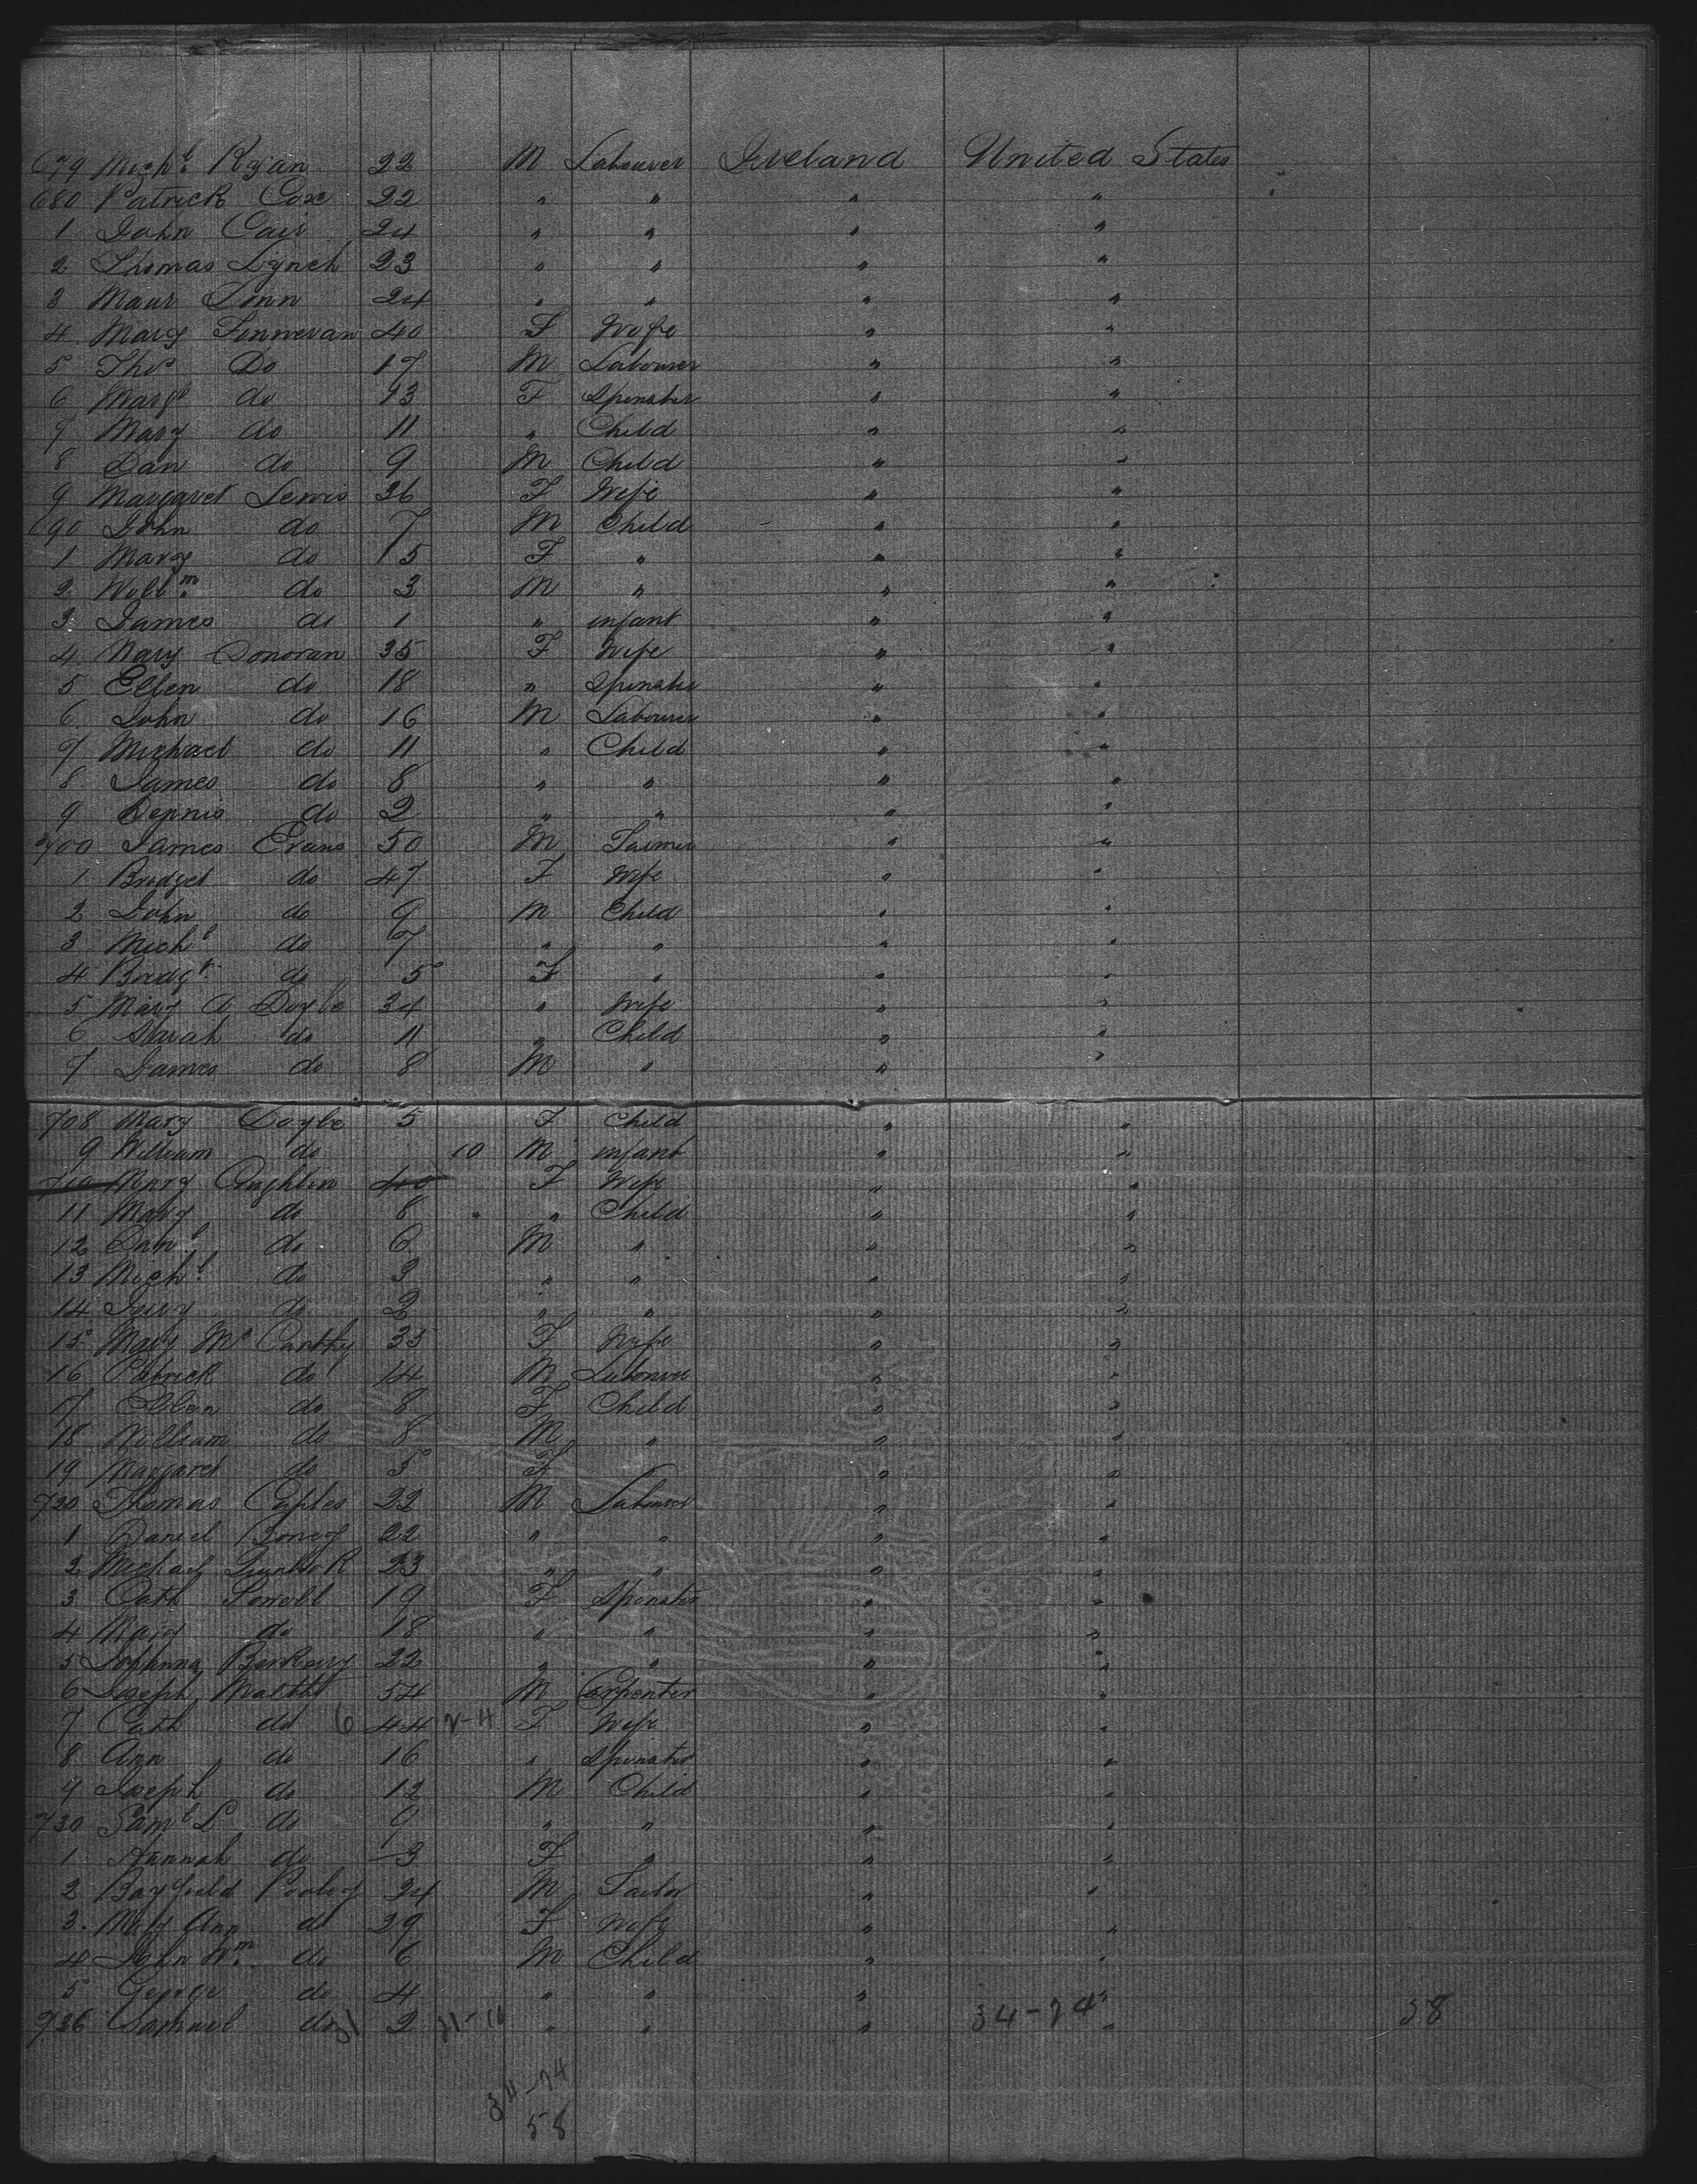 679 Michl Ryan 22 M Labourer Ireland United States
680 Patrick Cox 22 " " " "
1 John Cair 24 " " " "
2 Thomas Lynch 23 " " " "
3 Maur 24 " " " "
4 Mary Finneran 40 F Wife " "
5 Thos Do 17 M Labourer " "
6 Margt do 13 F Spinster " "
7 Mary do 11 " Child " "
8 Dan do 9 M Child " "
9 Margaret Lewis 36 F Wife " "
690 John do 7 M Child " "
1 Mary do 5 F " " "
2 Willm do 3 M " " "
3 James do 1 " infant " "
4 Mary Donovan 35 F Wife " "
5 Ellen do 18 " Spinster " "
6 John do 16 M Labourer " "
7 Michael do 11 " Child " "
8 James do 8 " " " "
9 Dennis do 2 " " " "
700 James Evans 50 M Farmer " "
1 Bridget do 47 F Wife " "
2 John do 9 M Child " "
3 Michl do 7 " " " "
4 Bridgt do 5 F " " "
5 Mary A Doyle 34 " Wife " "
6 Sarah do 11 " Child " "
7 James do 8 M " " "
708 Mary Doyle 5 F Child " "
9 William do 10 M infant " "
710 Mary Aughlin 40 F Wife " "
11 Mary do 8 " Child " "
12 Danl do 6 M " " "
13 Michl do 3 " " " "
14 do 2 " " " "
15 Mary McCarthy 35 F Wife " "
16 Patrick do 14 M Labourer " "
17 Ellen do 8 F Child " "
18 William do 8 M " " "
19 Margaret do 5 F " "
720 Thomas Caples 22 M Labourer " "
1 Daniel 22 " " " "
2 Michael 23 " " " "
3 Cath Powell 19 F Spinster " "
4 Mary do 18 " " " "
5 Johanna Berkery 22 " " " "
6 Joseph 54 M Carpenter " "
7 Cath do 6 44 2-4 F Wife " "
8 Ann do 16 " Spinster " "
9 Joseph do 12 M Child " "
730 Saml L do 9 " " " "
1 Hannah do 3 F " " "
2 Bayfield Pooley 34 M Tailor " "
3 Mary Ann do 29 F Wife " "
4 John Wm do 6 M Child " "
5 George do 4 " " " "
736 Samuel do 31 2 21-10 " " " 34-24 " 58
34-24
58